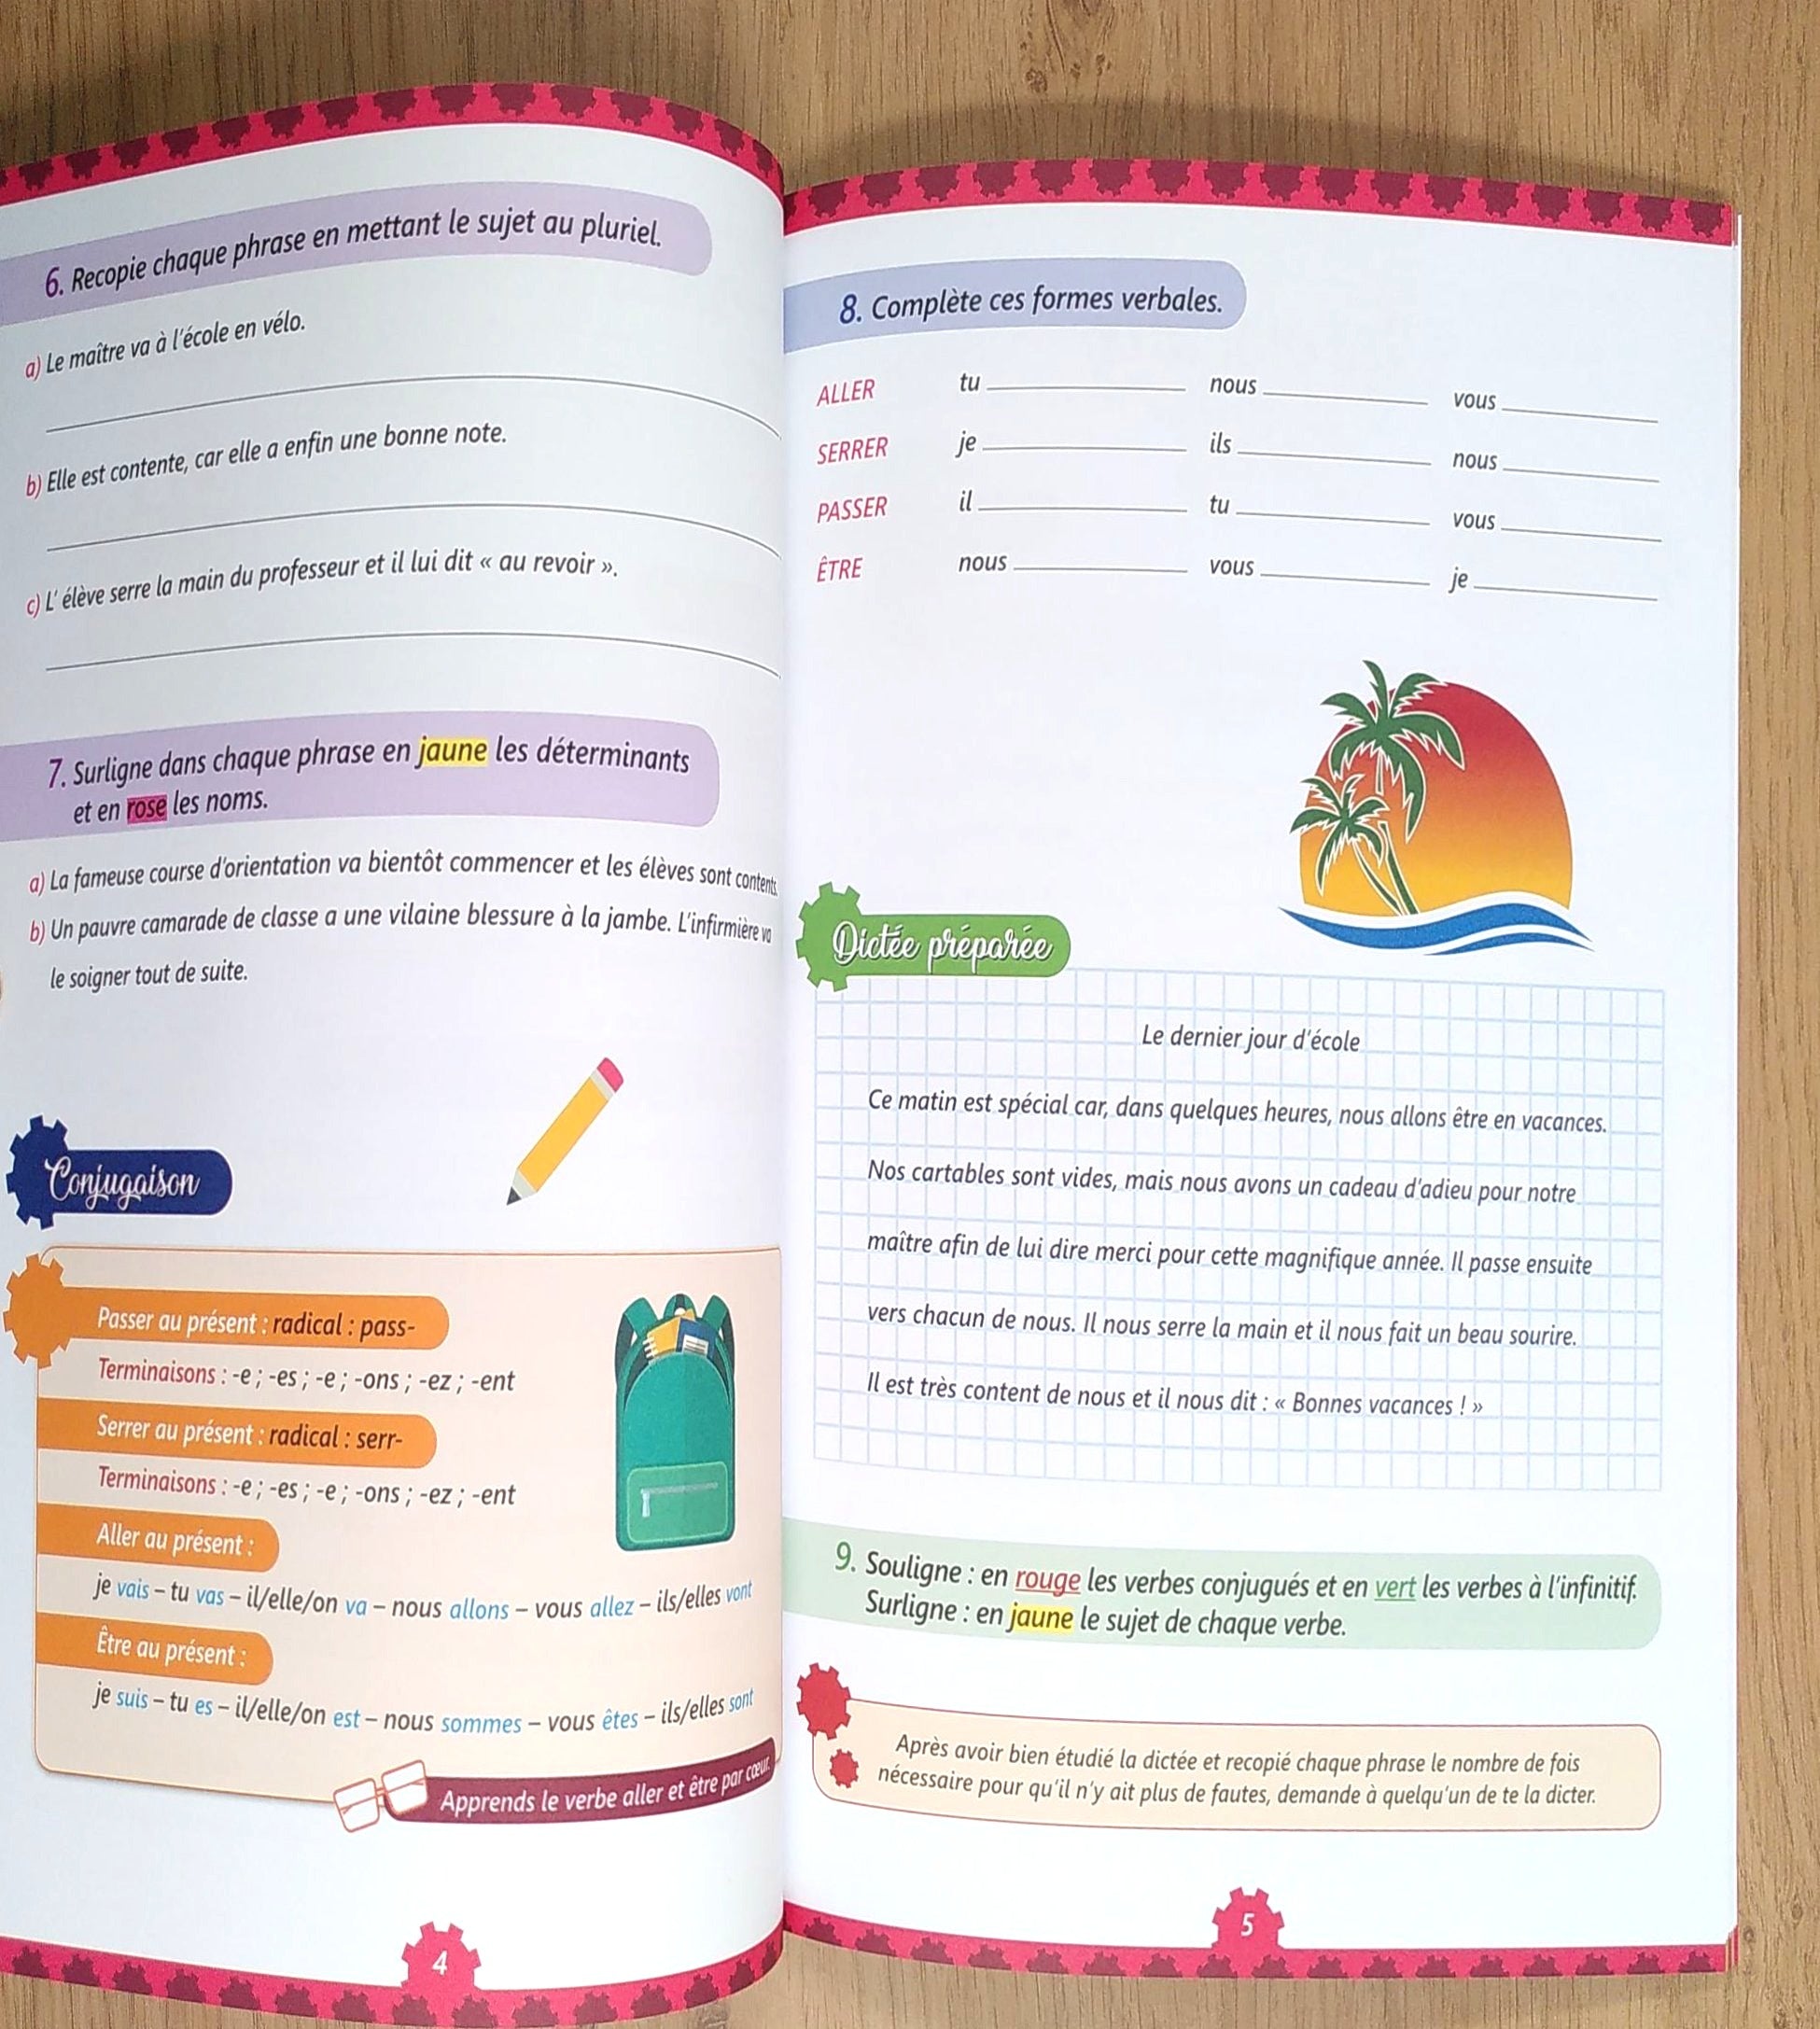 6. Recopie chaque phrase en mettant le sujet au pluriel.
a) Le maître va à l'école en vélo.
b) Elle est contente, car elle a enfin une bonne note.
c) L' élève serre la main du professeur et il lui dit « au revoir ».
7. Surligne dans chaque phrase en jaune les déterminants
et en rose les noms.
a) La fameuse course d'orientation va bientôt commencer et les élèves sont contents.
b) Un pauvre camarade de classe a une vilaine blessure à la jambe. L'infirmière va
le soigner tout de suite.
Conjugaison
Passer au présent : radical : pass-
Terminaisons : -e ; -es ; -e ; -ons ; -ez ; -ent
Serrer au présent : radical : serr-
Terminaisons : -e ; -es ; -e ; -ons ; -ez ; -ent
Aller au présent :
je vais – tu vas – il/elle/on va – nous allons – vous allez – ils/elles vont
Être au présent :
je suis – tu es – il/elle/on est – nous sommes – vous êtes – ils/elles sont
Apprends le verbe aller et être par cœur.
4
8. Complète ces formes verbales.
ALLER tu nous vous
SERRER je ils nous
PASSER il tu vous
ÊTRE nous vous je
Dictée préparée
Le dernier jour d'école
Ce matin est spécial car, dans quelques heures, nous allons être en vacances.
Nos cartables sont vides, mais nous avons un cadeau d'adieu pour notre
maître afin de lui dire merci pour cette magnifique année. Il passe ensuite
vers chacun de nous. Il nous serre la main et il nous fait un beau sourire.
Il est très content de nous et il nous dit : « Bonnes vacances ! »
9. Souligne : en rouge les verbes conjugués et en vert les verbes à l'infinitif.
Surligne : en jaune le sujet de chaque verbe.
Après avoir bien étudié la dictée et recopié chaque phrase le nombre de fois
nécessaire pour qu'il n'y ait plus de fautes, demande à quelqu'un de te la dicter.
5